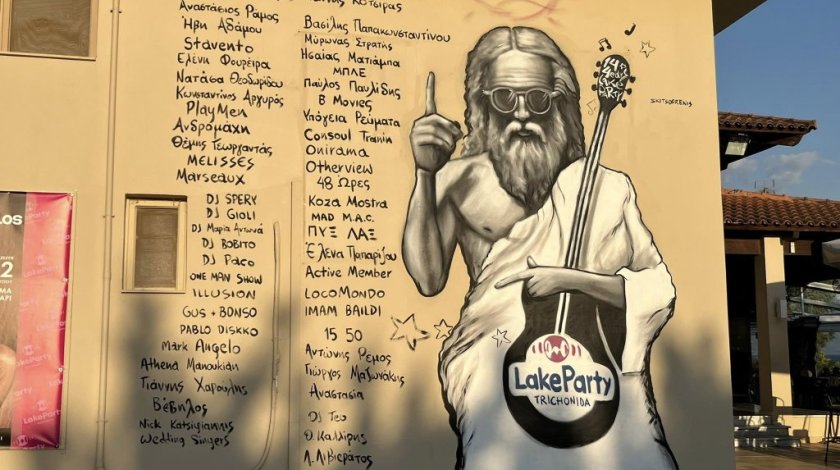 Αναστάσιος Ράμος
Ήβη Αδάμου
Stavento
Ελένη Φουρέιρα
Νατάσα Θεοδωρίδου
Κωνσταντίνος Αργυρός
PlayMen
Ανδρομάχη
Θέμης Γεωργαντάς
MELISSES
Marseaux
DJ SPERY
DJ GIOLI
DJ Μαρία Αντωνά
DJ BOBITO
DJ Paco
ONE MAN SHOW
ILLUSION
GUS + BONSO
PABLO DISKKO
Mark Angelo
Athena Manoukian
Γιάννης Χαρούλης
Βέβηλος
Nick Katsigiannis
Wedding Singers
Κότσιρας
Βασίλης Παπακωνσταντίνου
Μύρωνας Στρατής
Ησαΐας Ματιάμπα
ΜΠΛΕ
Παύλος Παυλίδης
B Movies
Υπόγεια Ρεύματα
Consoul Trainin
Onirama
Otherview
48 Ώρες
Koza Mostra
MAD M.A.C.
ΠΥΞ ΛΑΞ
Έλενα Παπαρίζου
Active Member
LOCOMONDO
IMAM BAILDI
15 50
Αντώνης Ρέμος
Γιώργος Μαζωνάκης
Αναστασία
DJ Teo
Θ. Καλλίρης
Λ. Λιβιεράτος
LakeParty
TRICHONIDA
LakeParty
LakeParty